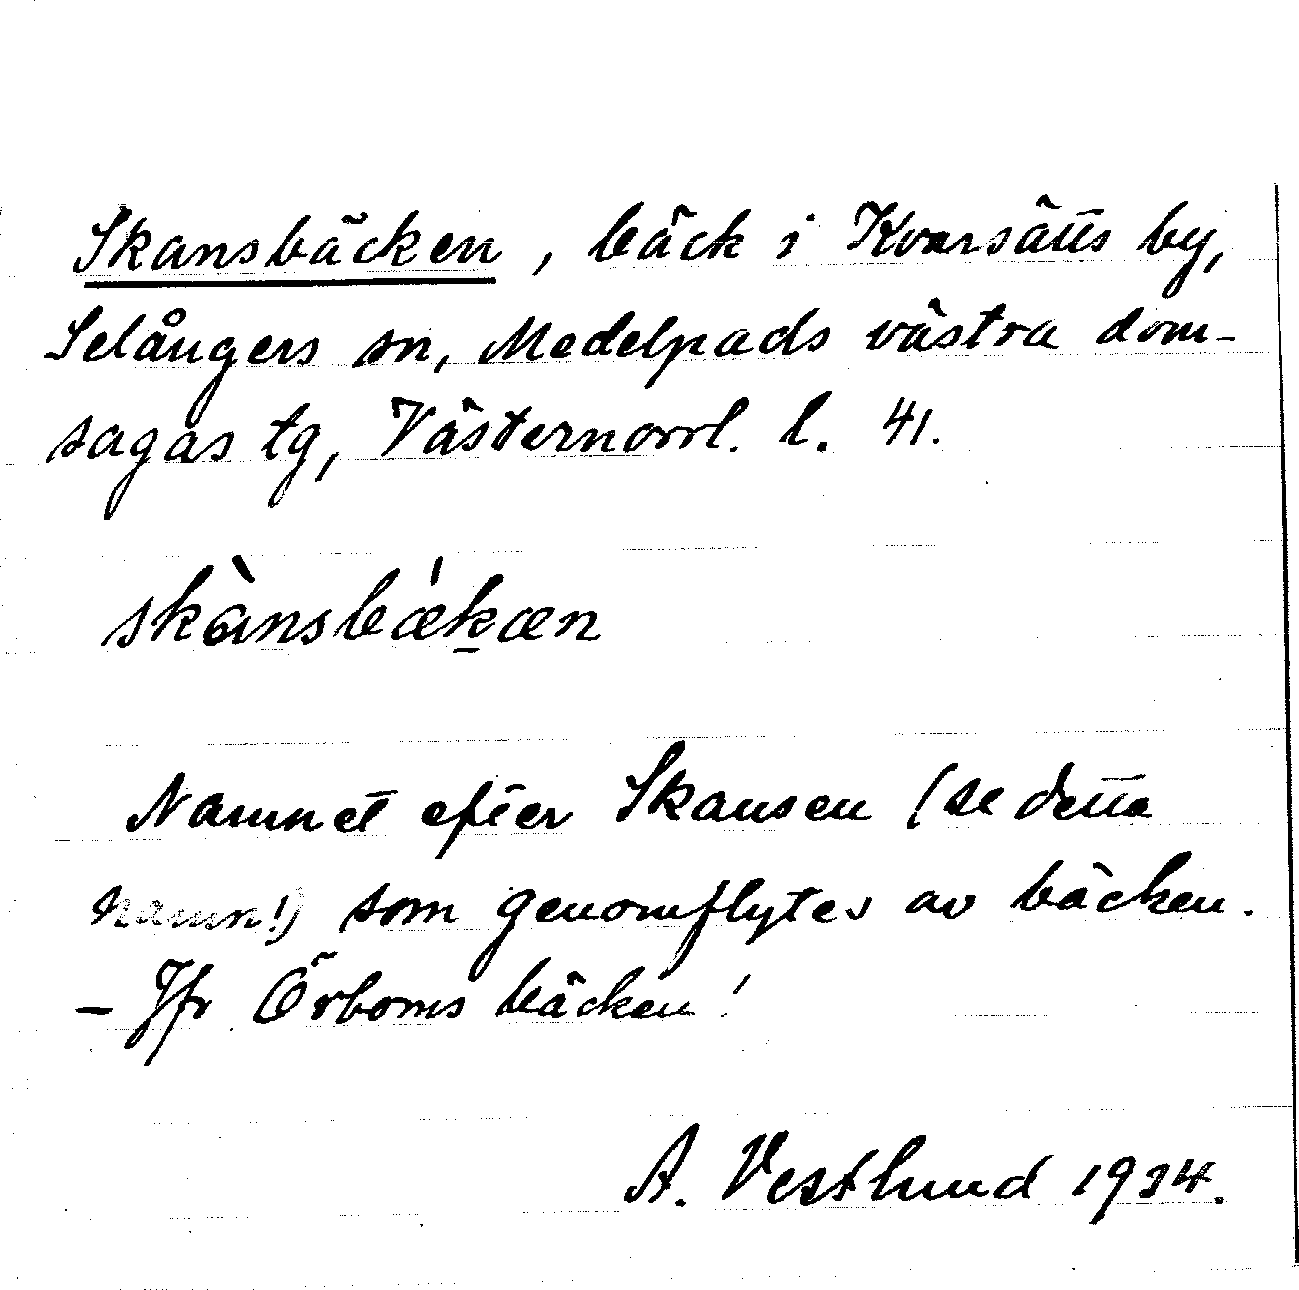 Skansbäcken, bäck i Kvarsätts by,
Selångers sn, Medelpads västra dom-
sagas tg, Västernorrl. l. 41.
skànsbǽkæn
Namnet efter Skansen (se detta
namn!) som genomflytes av bäcken.
– Jfr Örboms bäcken!
A. Vestlund 1934.